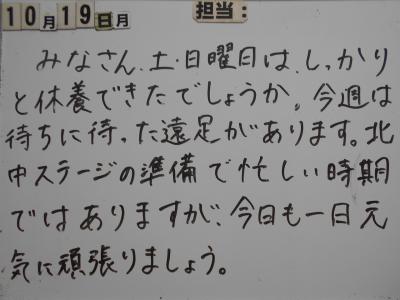 10月19日月 担当：
みなさん、土・日曜日は、しっかり
と休養できたでしょうか。今週は
待ちに待った遠足があります。北
中ステージの準備で忙しい時期
ではありますが、今日も一日元
気に頑張りましょう。